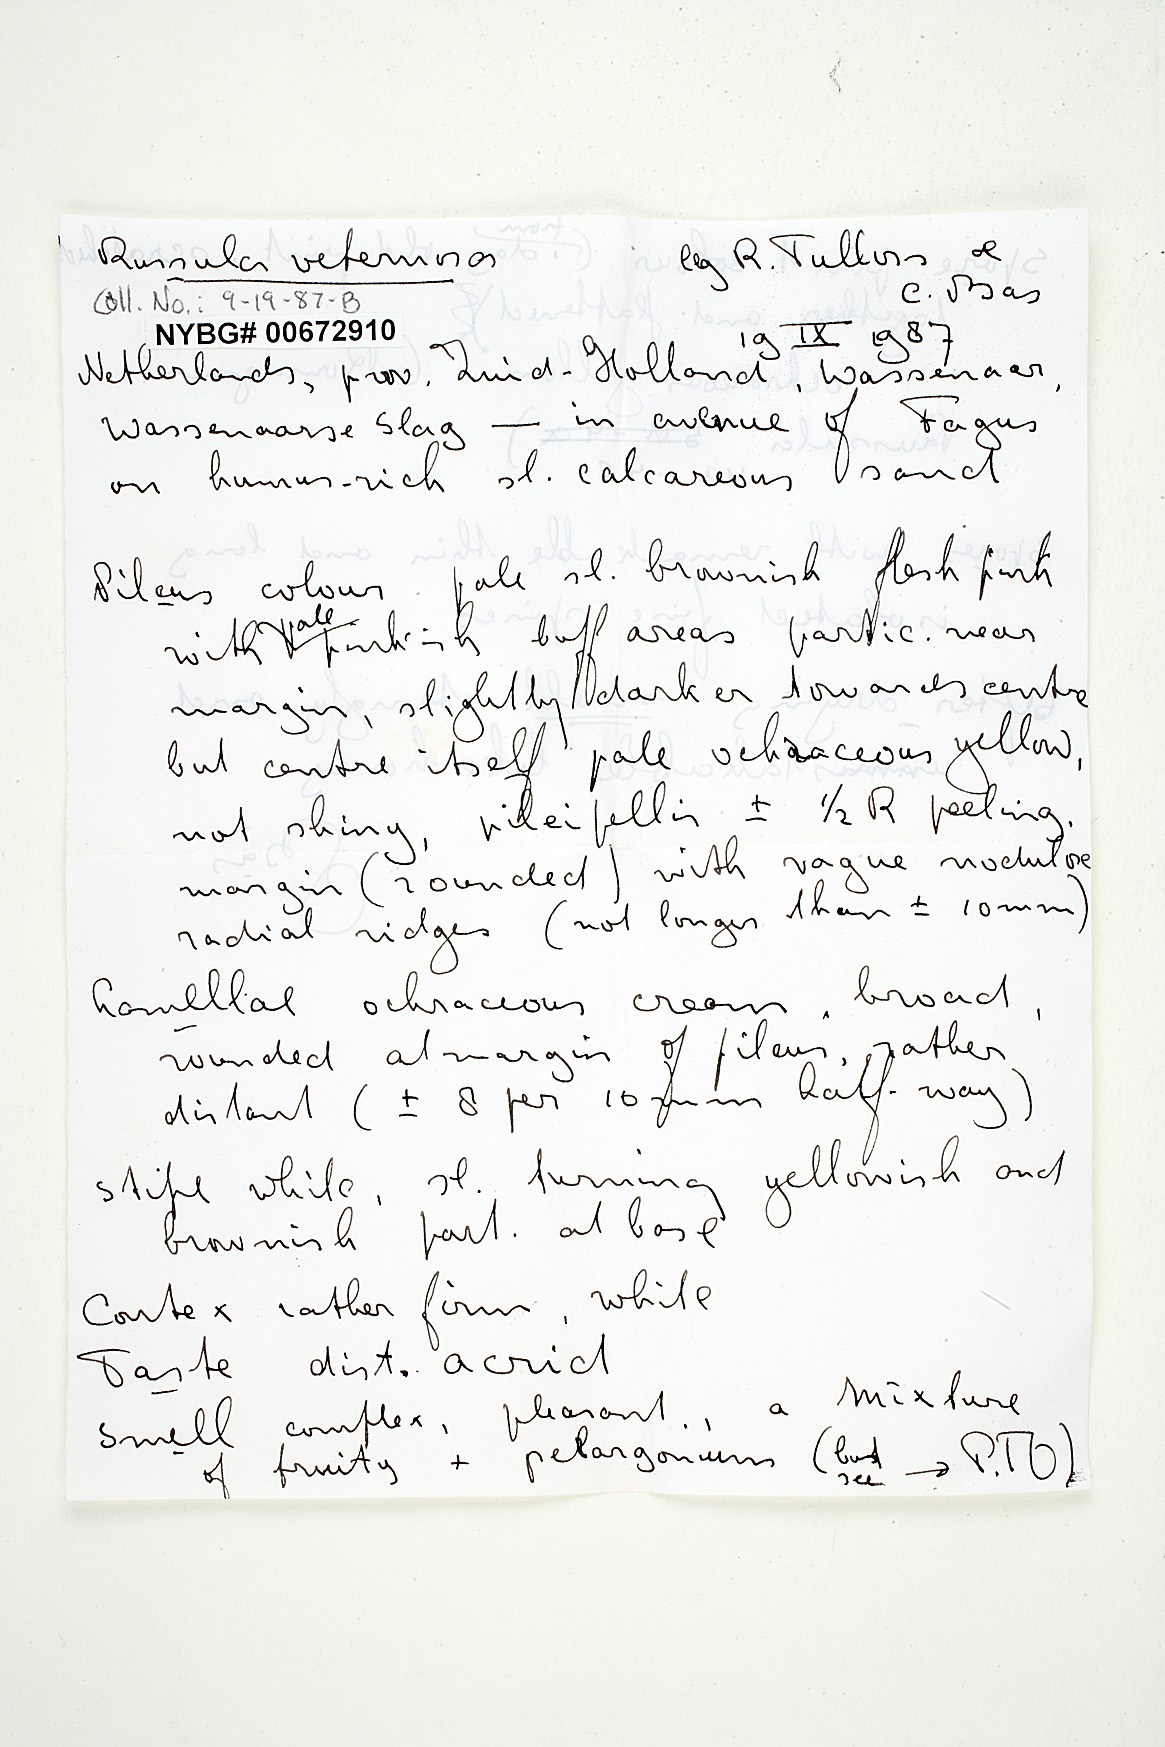 Russula veternosa
leg R. Tulloss &
C. Bas
Coll. No.: 9-19-87-B
NYBG# 00672910
19 IX 1987
Netherlands, prov. Zuid-Holland, Wassenaar,
Wassenaarse Slag — in avenue of Fagus
on humus-rich sl. calcareous sand
Pileus colour pale sl. brownish flesh pink
with pale pinkish buff areas partic. near
margin, slightly darker towards centre
but centre itself pale ochraceous yellow,
not shiny, pileipellis ± 1/2 R peeling.
margin (rounded) with vague nodulose
radial ridges (not longer than ± 10 mm)
Lamellae ochraceous cream, broad,
rounded at margin of pileus, rather
distant (± 8 per 10 mm half-way)
Stipe white, sl. turning yellowish and
brownish part. at base
Cortex rather firm, white
Taste dist. acrid
Smell complex, pleasant, a mixture
of fruity + pelargoniums (but see → P.T.O)